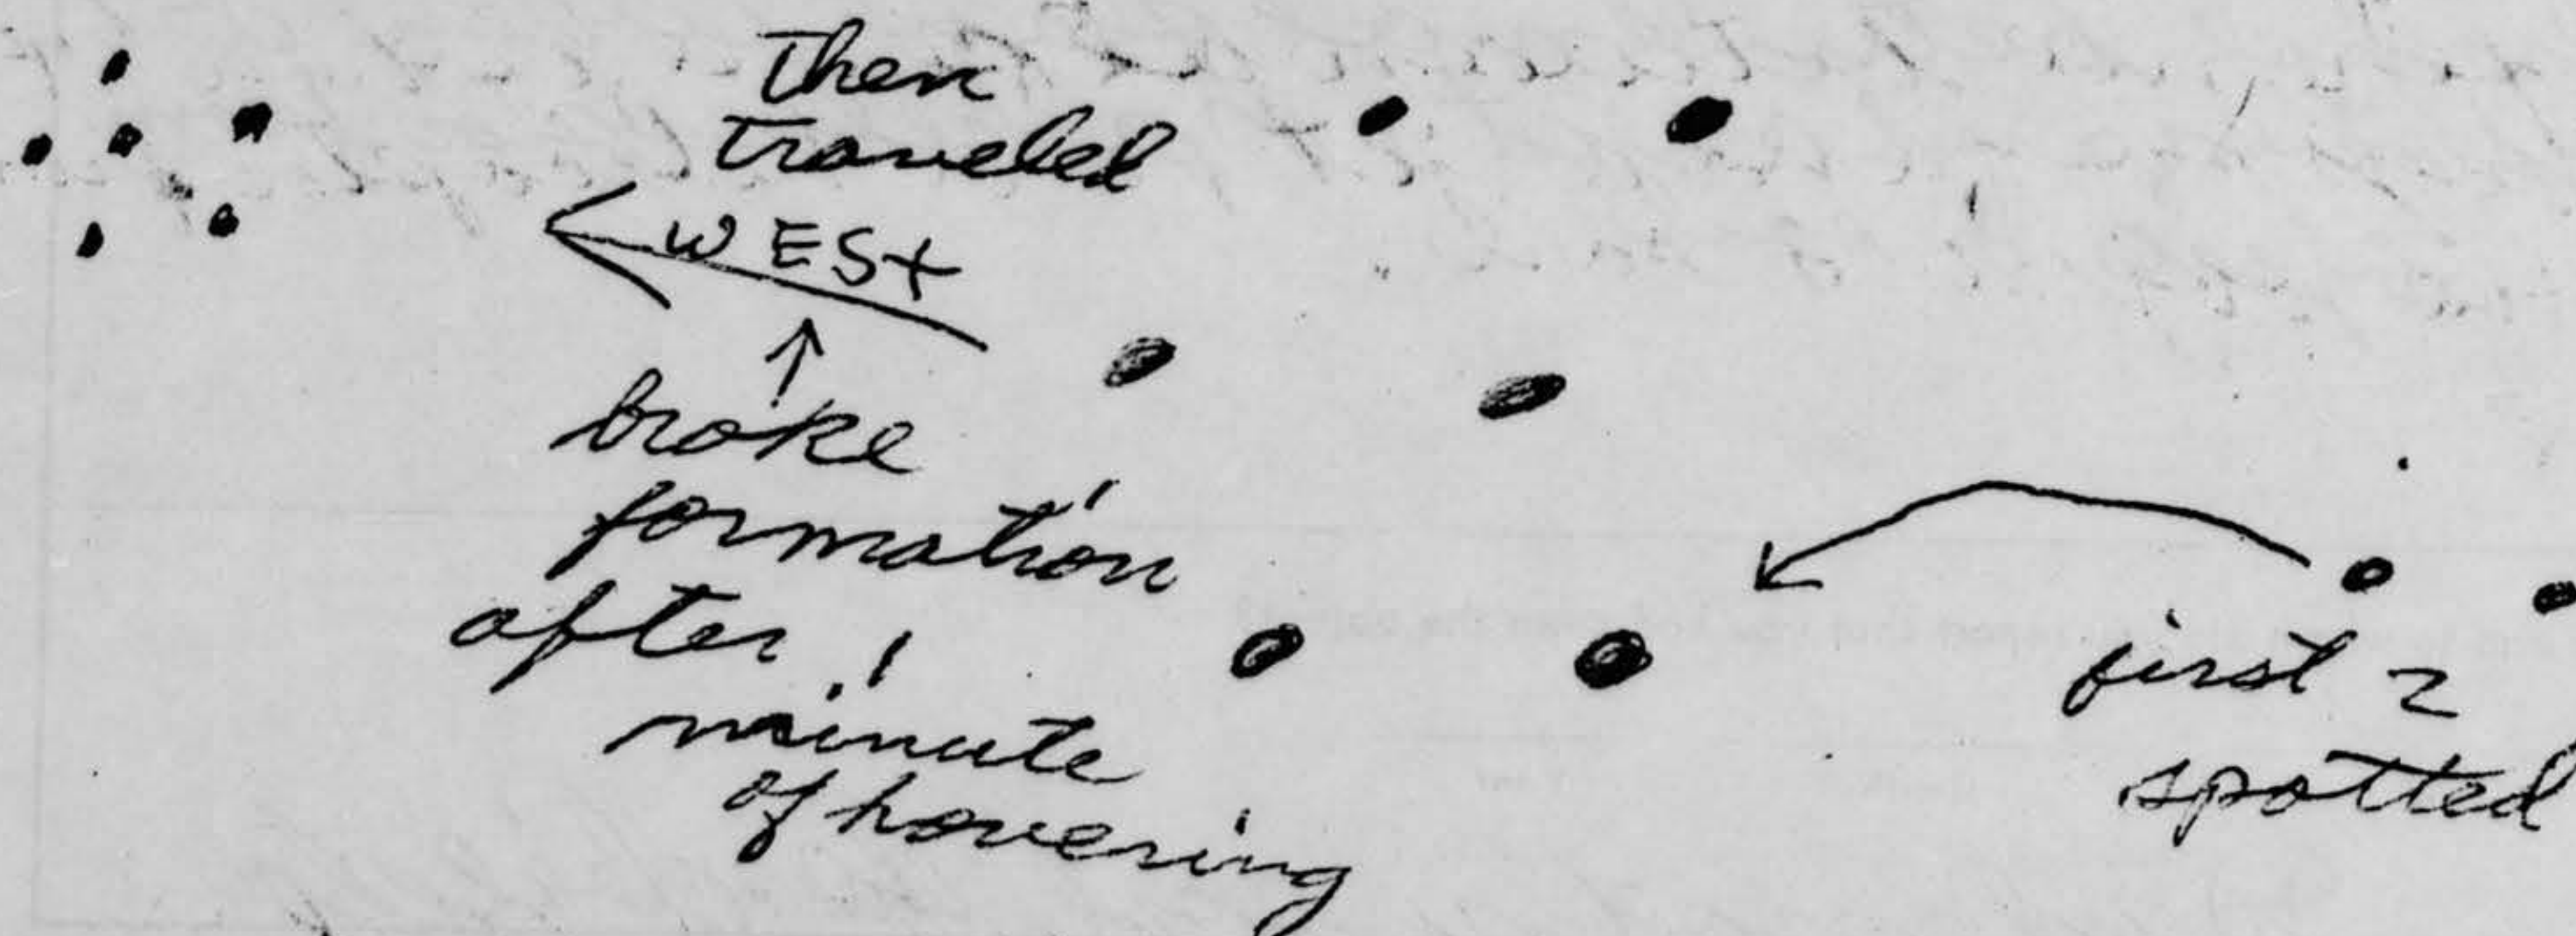 Then
traveled
WESt
broke
formation
after 1
minute
of hovering
first 2
spotted